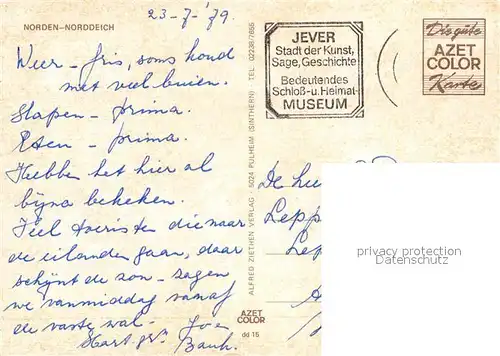 23-7-'79.
NORDEN-NORDDEICH
Weer - fris, soms koud
met veel buien.
Slapen - prima.
Eten - prima.
Hebben het hier al
bijna bekeken.
Veel toeristen die naar
de eilanden gaan, daar
schijnt de zon - zagen
we vanmiddag vanaf
de vaste wal.
Hart. gr.
ALFRED ZIETHEN VERLAG · 5024 PULHEIM (SINTHERN) · TEL. 02238/7655
AZET
COLOR
dd 15
JEVER
Stadt der Kunst,
Sage, Geschichte
Bedeutendes
Schloß-u.Heimat-
MUSEUM
Die gute
AZET
COLOR
Karte
De
Lepp
Lep
privacy protection
Datenschutz